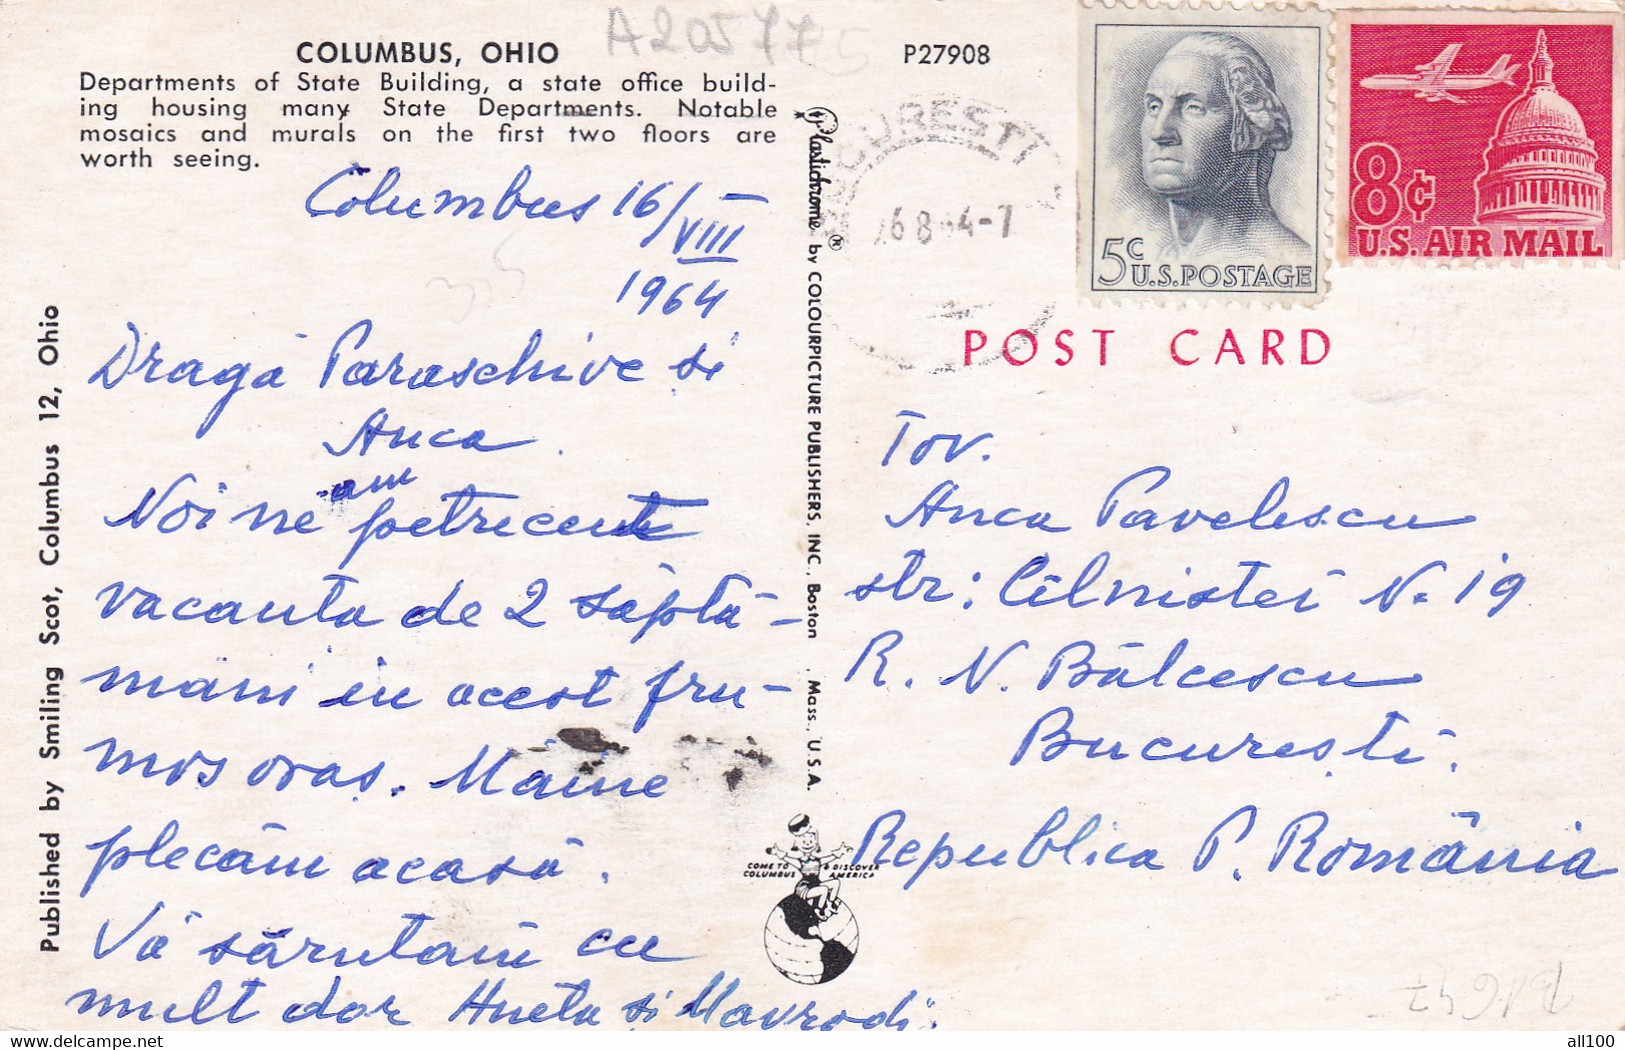 A205775
COLUMBUS, OHIO
P27908
Departments of State Building, a state office build-
ing housing many State Departments. Notable
mosaics and murals on the first two floors are
worth seeing.
Columbus 16/VIII
1964
Dragă Paraschive și
Anca.
Noi ne am petrecut
vacanta de 2 săptă-
mâni in acest fru-
mos oras. Mâine
plecăm acasă.
Vă sărutăm cu
mult dor Aneta și Mavrodi.
Published by Smiling Scot, Columbus 12, Ohio
Plastichrome ® by COLOURPICTURE PUBLISHERS, INC., Boston, Mass., U.S.A.
COME TO COLUMBUS & DISCOVER AMERICA
BUCURESTI
26 8 64-7
5¢
U.S.POSTAGE
8¢
U.S. AIR MAIL
POST CARD
Tov.
Anca Pavelescu
str: Cîlniștei N. 19
R. N. Bălcescu
București.
Republica P. România
all100